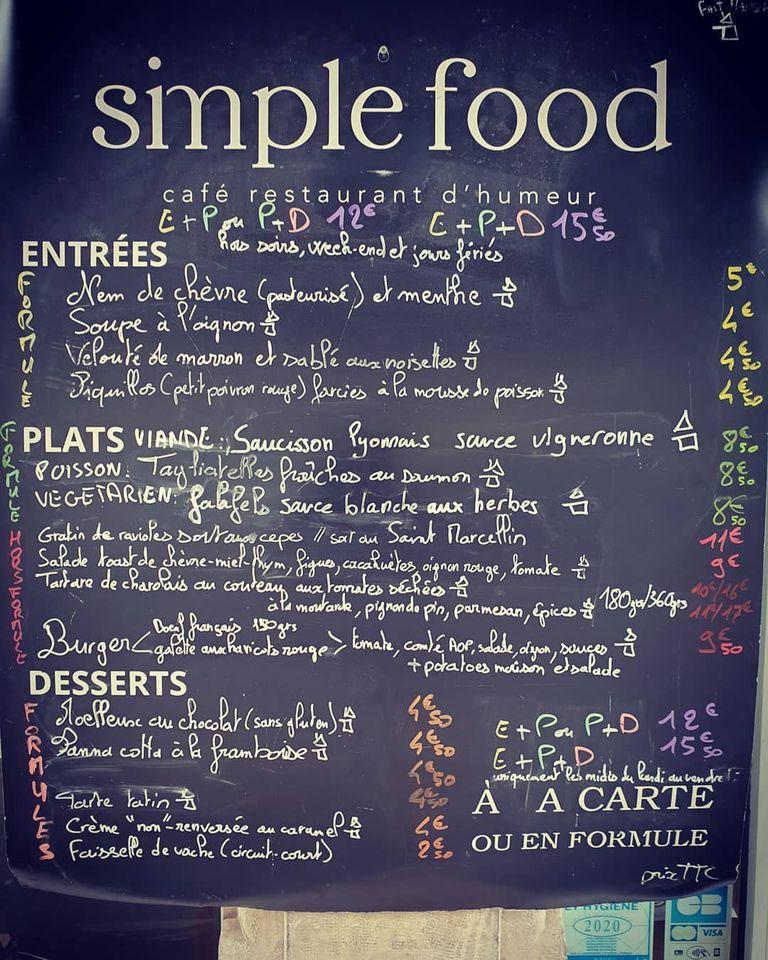 simple food
café restaurant d'humeur
E + P ou P + D 12€ E + P + D 15€50
hors soirs, week-end et jours fériés
ENTRÉES
FORMULE
Nem de chèvre (pasteurisé) et menthe 5€
Soupe à l'oignon 4€
Velouté de marron et sablé aux noisettes 4€50
Piquillos (petit poivron rouge) farcies à la mousse de poisson 4€50
FORMULE
PLATS VIANDE: Saucisson lyonnais sauce vigneronne 8€50
POISSON: Tagliatelles fraîches au saumon 8€50
VEGETARIEN: falafels sauce blanche aux herbes 8€50
HORS FORMULE
Gratin de ravioles aux cepes // soit au Saint Marcellin 11€
Salade toast de chèvre-miel-thym, figues, cacahuètes, oignon rouge, tomate 9€
Tartare de charolais au couteau aux tomates séchées 10€/16€
à la moutarde, pignon de pin, parmesan, épices 180grs/360grs 11€/17€
Boeuf français 150grs
Burger < galette aux haricots rouge > tomate, comté AOP, salade, oignon, sauces 9€50
+ potatoes maison et salade
DESSERTS
FORMULES
Moelleux au chocolat (sans gluten) 4€50
Panna cotta à la framboise 4€50
4€50
Tarte tatin 4€50
Crème "non" renversée au caramel 4€
Faisselle de vache (circuit-court) 2€50
E + P ou P + D 12€
E + P + D 15€50
uniquement les midis du lundi au vendre
À A CARTE
OU EN FORMULE
prix TTC
ET HYGIENE
2020
CB
VISA